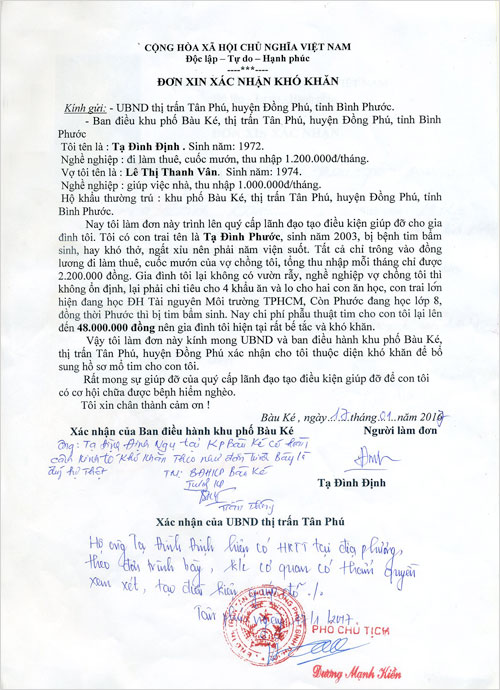 CỘNG HÒA XÃ HỘI CHỦ NGHĨA VIỆT NAM
Độc lập – Tự do – Hạnh phúc
----***----
ĐƠN XIN XÁC NHẬN KHÓ KHĂN
Kính gửi: - UBND thị trấn Tân Phú, huyện Đồng Phú, tỉnh Bình Phước.
- Ban điều khu phố Bàu Ké, thị trấn Tân Phú, huyện Đồng Phú, tỉnh Bình
Phước
Tôi tên là : Tạ Đình Định . Sinh năm: 1972.
Nghề nghiệp : đi làm thuê, cuốc mướn, thu nhập 1.200.000đ/tháng.
Vợ tôi tên là : Lê Thị Thanh Vân. Sinh năm: 1974.
Nghề nghiệp : giúp việc nhà, thu nhập 1.000.000đ/tháng.
Hộ khẩu thường trú : khu phố Bàu Ké, thị trấn Tân Phú, huyện Đồng Phú, tỉnh
Bình Phước.
Nay tôi làm đơn này trình lên quý cấp lãnh đạo tạo điều kiện giúp đỡ cho gia
đình tôi. Tôi có con trai tên là Tạ Đình Phước, sinh năm 2003, bị bệnh tim bẩm
sinh, hay khó thở, ngất xỉu nên phải nằm viện suốt. Tất cả chỉ trông vào đồng
lương đi làm thuê, cuốc mướn của vợ chồng tôi, tổng thu nhập mỗi tháng chỉ được
2.200.000 đồng. Gia đình tôi lại không có vườn rẫy, nghề nghiệp vợ chồng tôi thì
không ổn định, lại phải chi tiêu cho 4 khẩu ăn và lo cho hai con ăn học, con trai lớn
hiện đang học ĐH Tài nguyên Môi trường TPHCM, Còn Phước đang học lớp 8,
đồng thời Phước thì bị tim bẩm sinh. Nay chi phí phẫu thuật tim cho con tôi lại lên
đến 48.000.000 đồng nên gia đình tôi hiện tại rất bế tắc và khó khăn.
Vậy tôi làm đơn này kính mong UBND và ban điều hành khu phố Bàu Ké,
thị trấn Tân Phú, huyện Đồng Phú xác nhận cho tôi thuộc diện khó khăn để bổ
sung hồ sơ mổ tim cho con tôi.
Rất mong sự giúp đỡ của quý cấp lãnh đạo tạo điều kiện giúp đỡ để con tôi
có cơ hội chữa được bệnh hiểm nghèo.
Tôi xin chân thành cảm ơn !
Bàu Ké , ngày 17 tháng 01 ..năm 2017
Xác nhận của Ban điều hành khu phố Bàu Ké Người làm đơn
Ông: Tạ Đình Định Ngụ tại KP Bàu Ké có hoàn
cảnh kinh tế khó khăn theo như đơn trình bày là
đúng sự thật
TM: BĐHKP Bàu Ké
Trưởng KP
Định
Tạ Đình Định
Xác nhận của UBND thị trấn Tân Phú
Hộ ông Tạ Đình Định hiện có HKTT tại địa phương,
theo đơn trình bày, k/c cơ quan có thẩm quyền
xem xét, tạo điều kiện giúp đỡ ./.
Tân Phú, /1/2017.
PHÓ CHỦ TỊCH
Dương Mạnh Kiên